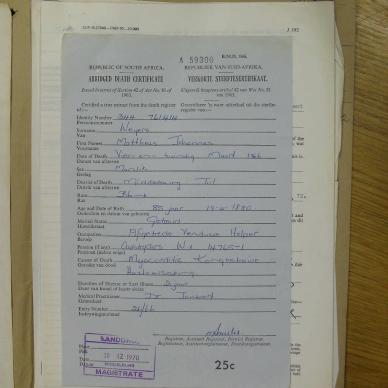 J 182
A 59300
B.M.D. 166.
REPUBLIC OF SOUTH AFRICA.
REPUBLIEK VAN SUID-AFRIKA.
ABRIDGED DEATH CERTIFICATE
VERKORTE STERFTESERTIFIKAAT.
Issued in terms of Section 42 of Act No. 81 of 1963.
Uitgereik kragtens artikel 42 van Wet No. 81 van 1963.
Certified a true extract from the death register of:—
Gesertifiseer 'n ware uittreksel uit die sterfteregister van:—
Identity Number
Persoonsnommer
Surname Weyers
Van
First Names Mattheus Johannes
Voorname
Date of Death
Datum van afsterwe
Sex Manlik
Geslag
District of Death Middelburg Tvl
Distrik van afsterwe
Race Blank
Ras
Age and Date of Birth 85 jaar
Ouderdom en datum van geboorte
Marital Status Getroud
Huwelikstaat
Occupation Afgetrede Vendusie Helper
Beroep
Pension (if any)
Pensioen (indien enige)
Cause of Death
Oorsaak van dood
Duration of Disease or Last Illness
Duur van kwaal of laaste siekte
Medical Practitioner Dr
Geneesheer
Entry Number 26/66
Inskrywingsnommer
Registrar, Assistant Registrar, District Registrar.
LANDDROS
Date
12 1970
MAGISTRATE
25c